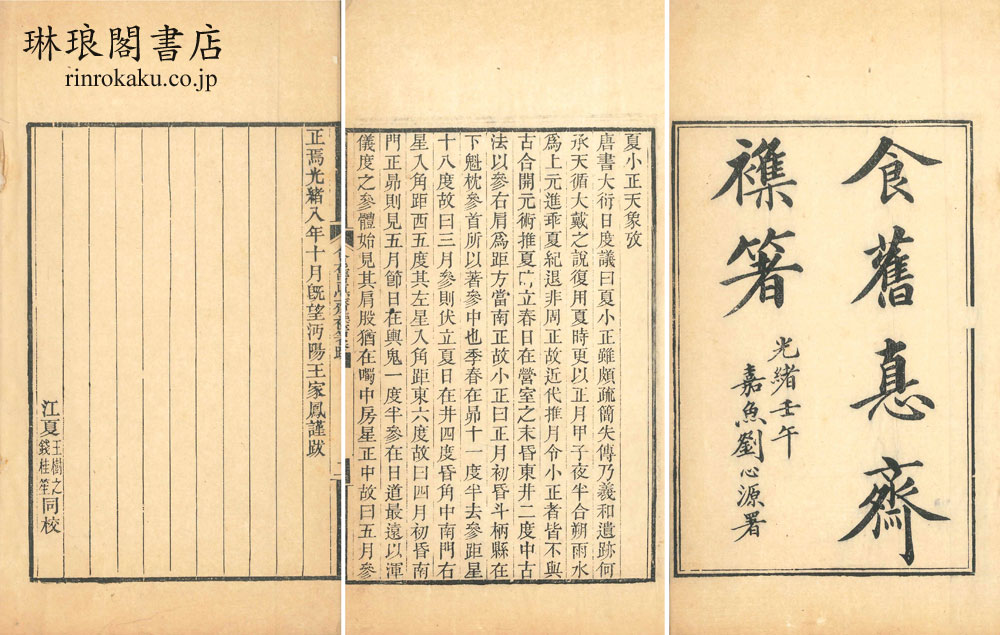 琳琅閣書店
rinrokaku.co.jp
食舊悳齋
襍箸
光緒壬午
嘉魚劉心源署
夏小正天象攷
唐書大衍日度議曰夏小正雖頗疏簡失傳乃羲和遺跡何
承天循大戴之說復用夏時更以正月甲子夜半合朔雨水
爲上元進乖夏紀退非周正故近代推月令小正者皆不與
古合開元術推夏時立春日在營室之末昏東井二度中古
法以參右肩爲距方當南正故小正曰正月初昏斗柄縣在
下魁枕參首所以著參中也季春在昴十一度半去參距星
十八度故曰三月參則伏立夏日在井四度昏角中南門右
星入角距西五度其左星入角距東六度故曰四月初昏南
門正昴則見五月節日在輿鬼一度半參在日道最遠以渾
儀度之參體始見其肩股猶在濁中房星正中故曰五月參
正焉光緒八年十月旣望沔陽王家鳳謹跋
江夏王樹之錢桂笙同校